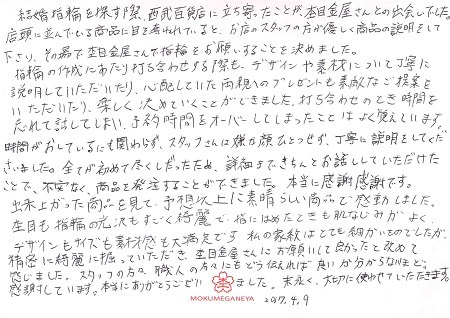 結婚指輪を探す際、西武百貨店に立ち寄ったことが、杢目金屋さんとの出会いでした。
店頭に並んでいる商品に目を奪われていると、お店のスタッフの方が優しく商品の説明をして
下さり、その場で杢目金屋さんで指輪をお願いすることを決めました。
指輪の作成にあたり打ち合わせする際も、デザインや素材について丁寧に
説明していただいたり、心配していた両親へのプレゼントも素敵なご提案を
いただいたり、楽しく決めていくことができました。打ち合わせのとき時間を
忘れて試してしまい、予約時間をオーバーしてしまったことはよく覚えています。
時間がおしているにも関わらず、スタッフさんは嫌な顔ひとつせず、丁寧に説明をしてくだ
さいました。全てが初めて尽くしだったため、詳細まできちんとお話ししていただけた
ことで、不安なく、商品を発注することができました。本当に感謝感謝です。
出来上がった商品を見て、予想以上に素晴らしい商品で感動しました。
杢目も指輪の光沢もすごく綺麗で、指にはめたときも肌なじみがよく、
デザインもサイズも素材感も大満足です。私の家紋はとても細かいものでしたが、
精密に綺麗に掘っていただき、杢目金屋さんにお願いして良かったと改めて
感じました。スタッフの方々、職人の方々にもどう伝えれば良いか分からないほど、
感謝しています。本当にありがとうございました。末永く、大切に使わせていただきます。
MOKUMEGANEYA
2017.4.9